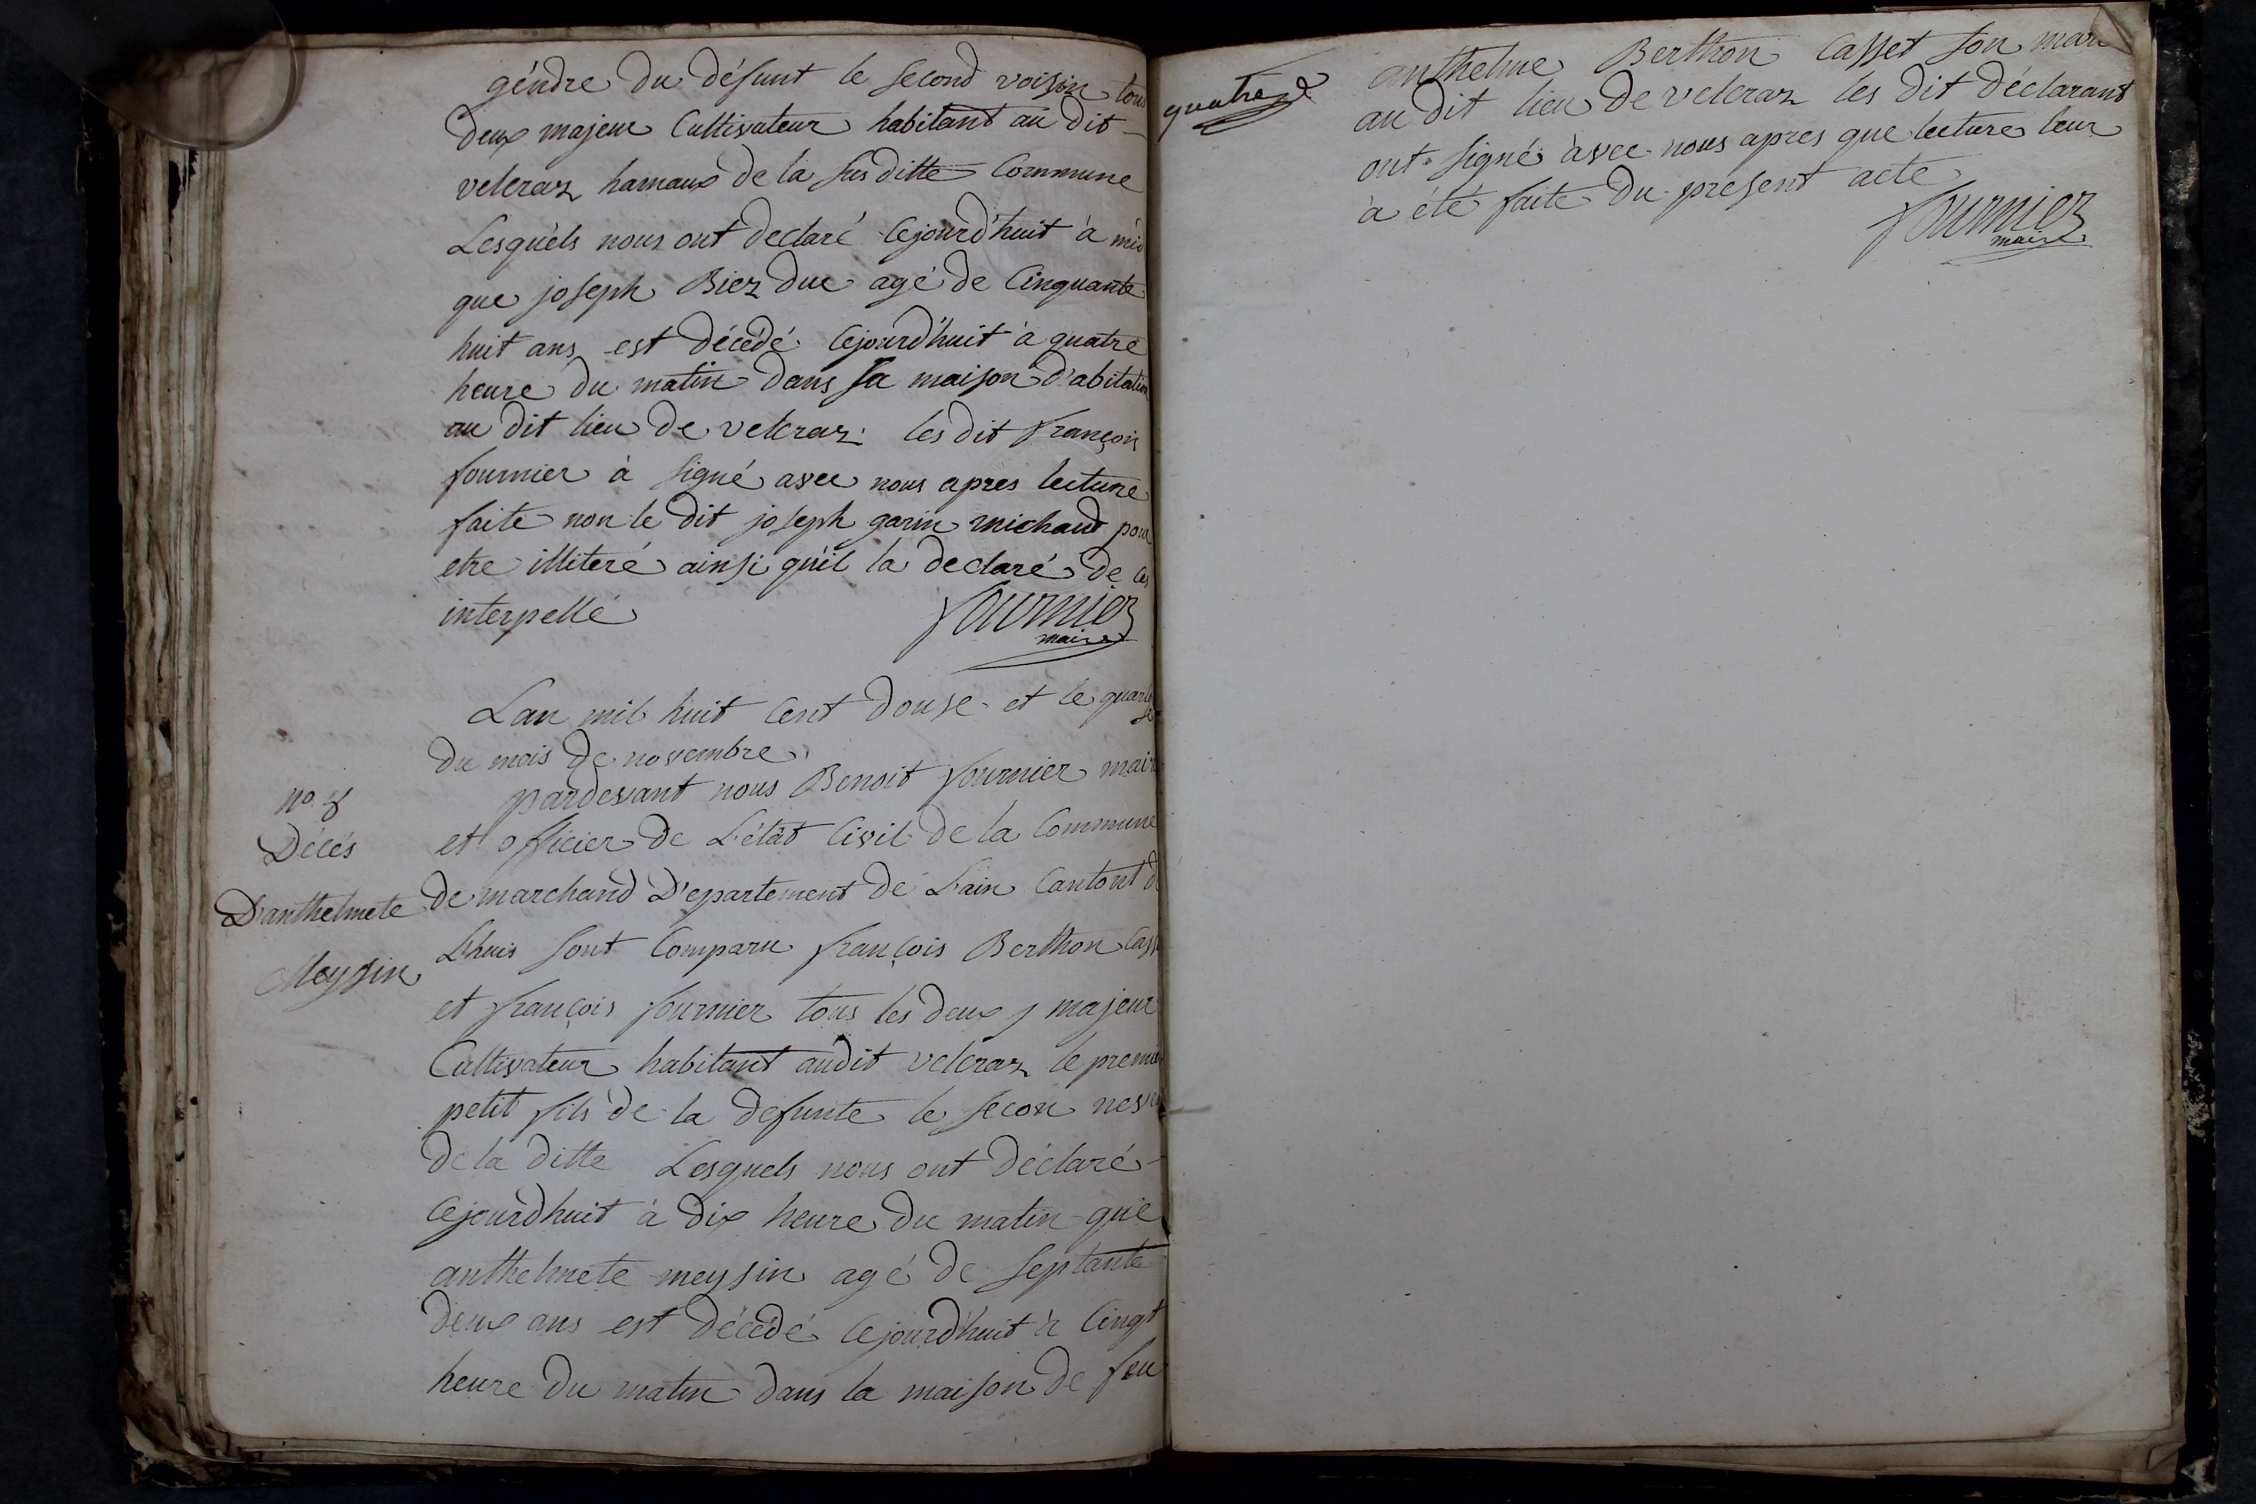 gendre du défunt le second voisin tous
deux majeur Cultivateur habitant au dit
velcraz hamaux de la susditte Commune
Lesquels nous ont declaré cejourd'huit à midi
que joseph Biez duc agé de Cinquante
huit ans est décédé cejourd'huit à quatre
heure du matin dans sa maison d'abitation
au dit lieu de velcraz les dit françois
fournier à signé avec nous apres lecture
faite non le dit joseph garin michaud pour
etre illiteré ainsi qu'il la declaré de ces
interpellé
fournier
maire
Lan mil huit Cent Douse et le quatorse
du mois de novembre
pardevant nous Benoit fournier maire
et officier de L'état Civil de la Commune
de marchand D'epartement de L'ain Cantont de
Lhuis sont Comparu françois Berthon Casset
et françois fournier tous les deux majeur
Cultivateur habitant audit velcraz le premier
petit fils de la defunte le secon neveu
de la ditte Lesquels nous ont déclaré
Cejourdhuit à dix heure du matin que
anthelmete meysin agé de septante
deux ans est décédé cejourd'huit à Cingt
heure du matin dans la maison de feu
No 8
Décés
D'anthelmete
Meysin
quatre
anthelme Berthon Casset son mari
au dit lieu de velcraz les dit déclarant
ont signé avec nous apres que lecture leur
à été faite du present acte
fournier
maire